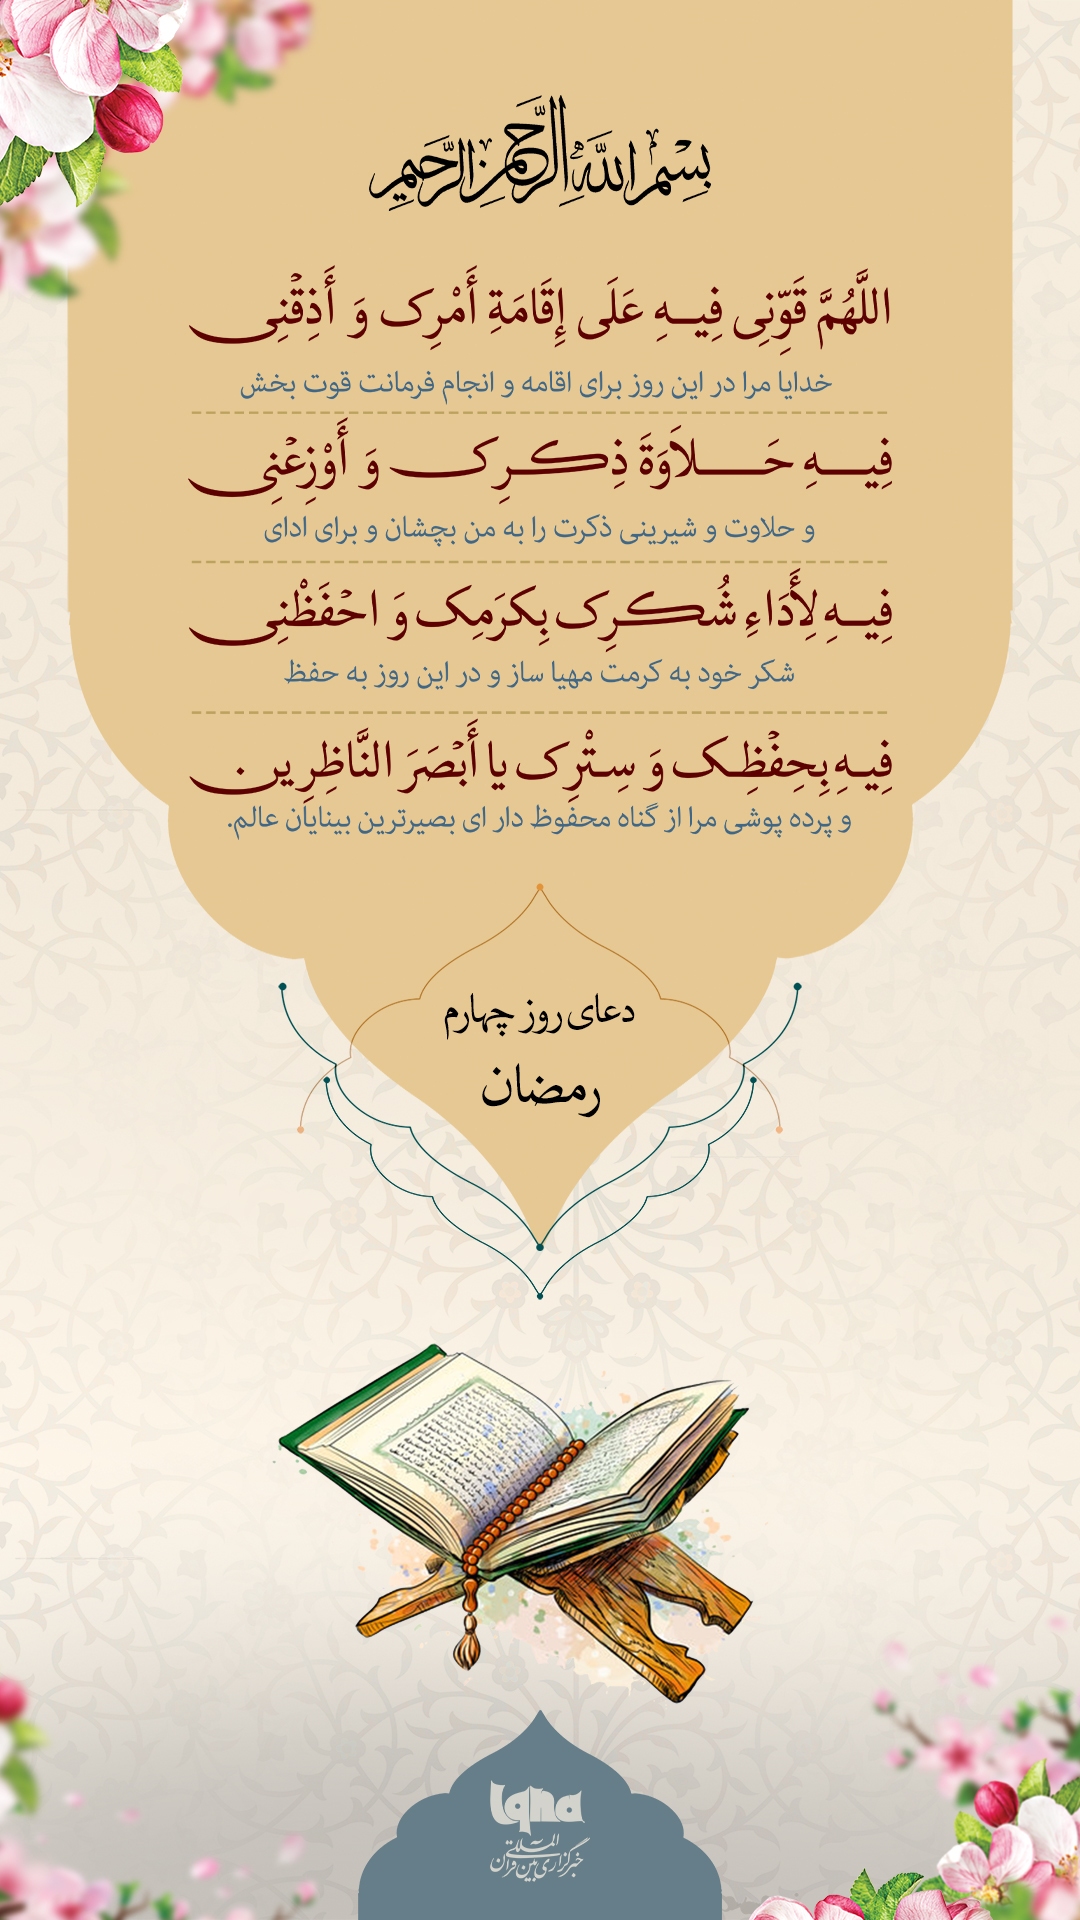 بِسْمِ اللَّهِ الرَّحْمنِ الرَّحِيمِ
اللَّهُمَّ قَوِّنِی فِیهِ عَلَى إِقَامَةِ أَمْرِک وَ أَذِقْنِی
خدایا مرا در این روز برای اقامه و انجام فرمانت قوت بخش
فِیهِ حَلاَوَةَ ذِکرِک وَ أَوْزِعْنِی
و حلاوت و شیرینی ذکرت را به من بچشان و برای ادای
فِیهِ لِأَدَاءِ شُکرِک بِکرَمِک وَ احْفَظْنِی
شکر خود به کرمت مهیا ساز و در این روز به حفظ
فِیهِ بِحِفْظِک وَ سِتْرِک یا أَبْصَرَ النَّاظِرِین
و پرده پوشی مرا از گناه محفوظ دار ای بصیرترین بینایان عالم.
دعای روز چهارم
رمضان
iqna
خبرگزاری بین المللی قرآن